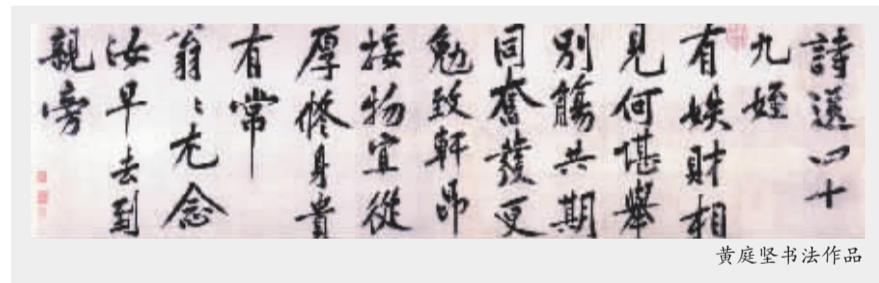 詩送四十
九姪
有娭財相
見何堪舉
別觴共期
同奮發更
勉致軒昂
接物宜從
厚修身貴
有常
翁〻尤念
汝早去到
親旁
黄庭坚书法作品